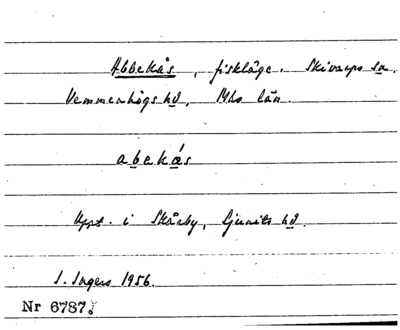 Abbekås, fiskläge. Skivarps sn.
Vemmenhögs hd, Mhs län.
abekǻs
Uppt. i Skårby, Ljunits hd.
I. Ingers 1956.
Nr 6787.